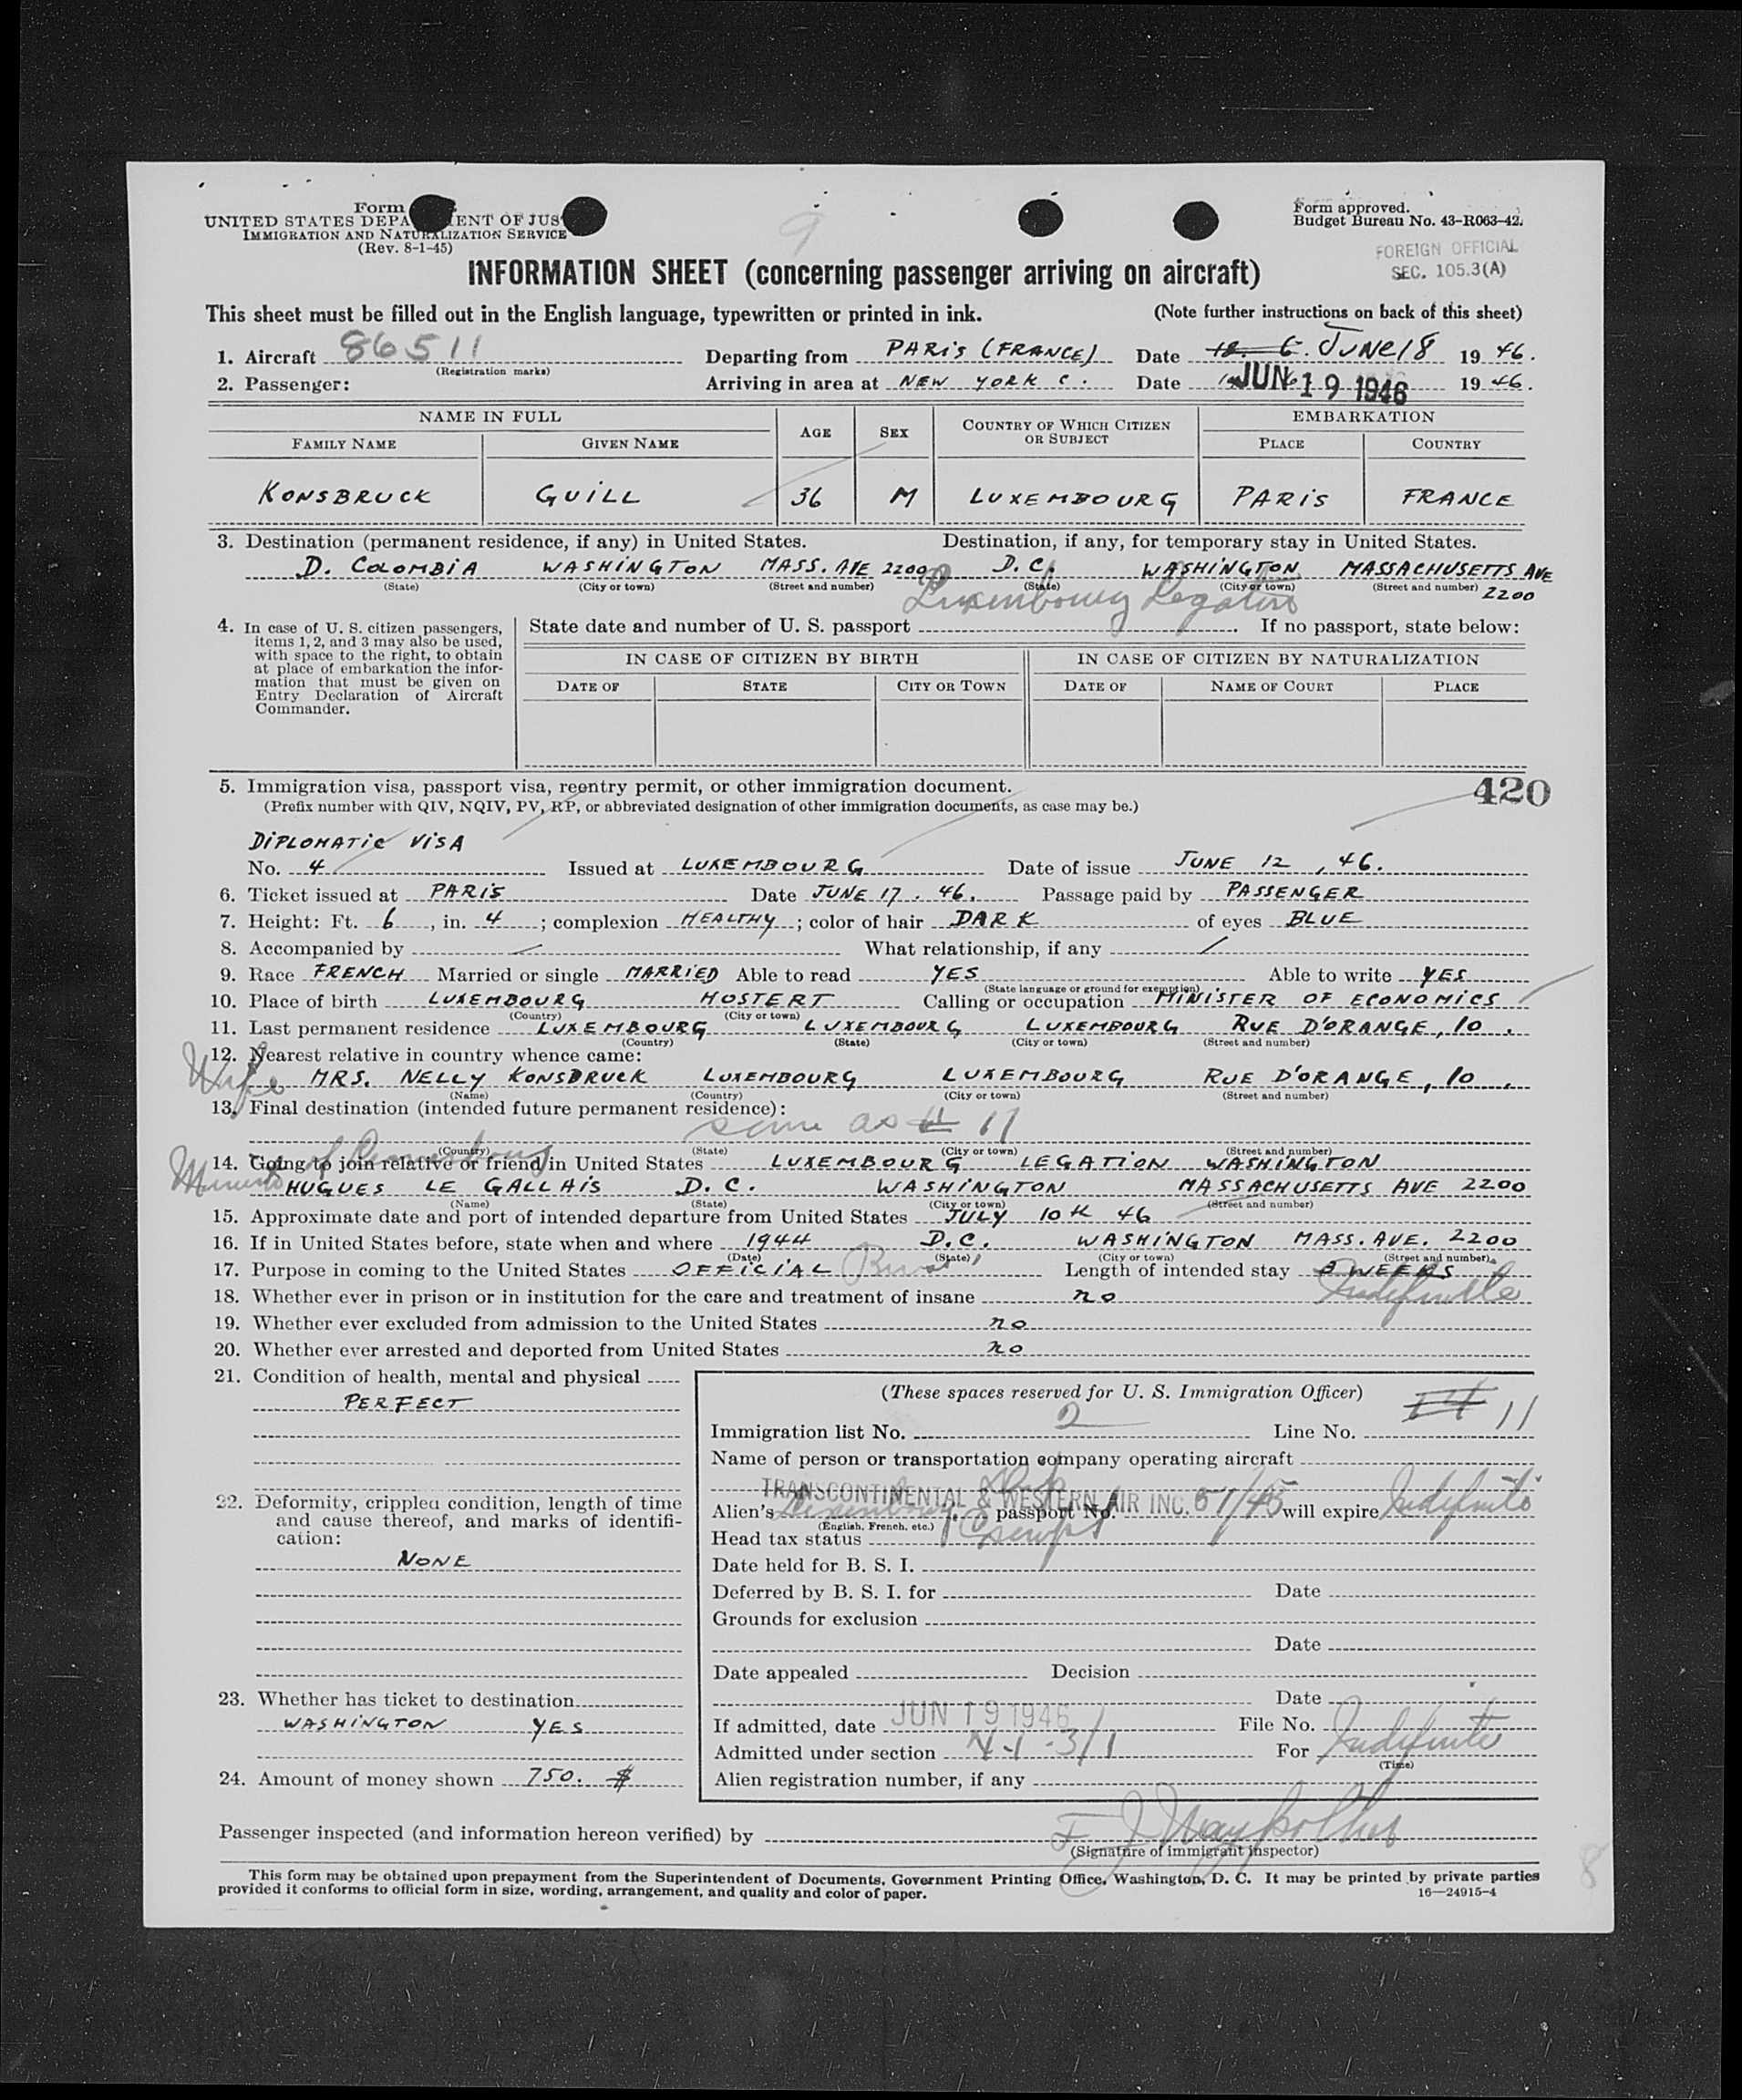 Form
UNITED STATES DEPA ENT OF JUS
IMMIGRATION AND NATURALIZATION SERVICE
(Rev. 8-1-45)
9
Form approved.
Budget Bureau No. 43-R063-42.
FOREIGN OFFICIAL
SEC. 105.3(A)
INFORMATION SHEET (concerning passenger arriving on aircraft)
This sheet must be filled out in the English language, typewritten or printed in ink. (Note further instructions on back of this sheet)
1. Aircraft 86511 Departing from PARIS (FRANCE) Date JUNE 18 1946.
(Registration marks)
2. Passenger: Arriving in area at NEW YORK C. Date JUN 19 1946 1946.
NAME IN FULL AGE SEX COUNTRY OF WHICH CITIZEN OR SUBJECT EMBARKATION
FAMILY NAME GIVEN NAME PLACE COUNTRY
KONSBRUCK GUILL 36 M LUXEMBOURG PARIS FRANCE
3. Destination (permanent residence, if any) in United States. Destination, if any, for temporary stay in United States.
D. COLOMBIA WASHINGTON MASS. AVE 2200 D.C. WASHINGTON MASSACHUSETTS AVE 2200
(State) (City or town) (Street and number) (State) (City or town) (Street and number)
Luxembourg Legation
4. In case of U. S. citizen passengers, items 1, 2, and 3 may also be used, with space to the right, to obtain at place of embarkation the information that must be given on Entry Declaration of Aircraft Commander.
State date and number of U. S. passport . If no passport, state below:
IN CASE OF CITIZEN BY BIRTH IN CASE OF CITIZEN BY NATURALIZATION
DATE OF STATE CITY OR TOWN DATE OF NAME OF COURT PLACE
5. Immigration visa, passport visa, reentry permit, or other immigration document. 420
(Prefix number with QIV, NQIV, PV, RP, or abbreviated designation of other immigration documents, as case may be.)
DIPLOMATIC VISA
No. 4 Issued at LUXEMBOURG Date of issue JUNE 12, 46.
6. Ticket issued at PARIS Date JUNE 17. 46. Passage paid by PASSENGER
7. Height: Ft. 6, in. 4; complexion HEALTHY; color of hair DARK of eyes BLUE
8. Accompanied by / What relationship, if any /
9. Race FRENCH Married or single MARRIED Able to read YES Able to write YES
(State language or ground for exemption)
10. Place of birth LUXEMBOURG HOSTERT Calling or occupation MINISTER OF ECONOMICS
(Country) (City or town)
11. Last permanent residence LUXEMBOURG LUXEMBOURG LUXEMBOURG RUE D'ORANGE, 10.
(Country) (State) (City or town) (Street and number)
12. Nearest relative in country whence came:
Wife MRS. NELLY KONSBRUCK LUXEMBOURG LUXEMBOURG RUE D'ORANGE, 10,
(Name) (Country) (City or town) (Street and number)
13. Final destination (intended future permanent residence):
same as # 11
(Country) (State) (City or town) (Street and number)
14. Going to join relative or friend in United States LUXEMBOURG LEGATION WASHINGTON
HUGUES LE GALLAIS D.C. WASHINGTON MASSACHUSETTS AVE 2200
(Name) (State) (City or town) (Street and number)
15. Approximate date and port of intended departure from United States JULY 10th 46
16. If in United States before, state when and where 1944 D.C. WASHINGTON MASS. AVE. 2200
(Date) (State) (City or town) (Street and number)
17. Purpose in coming to the United States OFFICIAL Length of intended stay 3 WEEKS
Indefinite
18. Whether ever in prison or in institution for the care and treatment of insane no
19. Whether ever excluded from admission to the United States no
20. Whether ever arrested and deported from United States no
21. Condition of health, mental and physical
PERFECT
22. Deformity, crippled condition, length of time and cause thereof, and marks of identification:
NONE
23. Whether has ticket to destination
WASHINGTON YES
24. Amount of money shown 750. $
(These spaces reserved for U. S. Immigration Officer)
Immigration list No. 2 Line No. 11
Name of person or transportation company operating aircraft
TRANSCONTINENTAL & WESTERN AIR INC.
Alien's passport No. 51/45 will expire Indefinite
(English, French, etc.)
Head tax status Exempt
Date held for B. S. I.
Deferred by B. S. I. for Date
Grounds for exclusion
Date
Date appealed Decision
Date
If admitted, date JUN 19 1946 File No.
Admitted under section For Indefinite
(Time)
Alien registration number, if any
Passenger inspected (and information hereon verified) by
(Signature of immigrant inspector)
8
This form may be obtained upon prepayment from the Superintendent of Documents, Government Printing Office, Washington, D. C. It may be printed by private parties
provided it conforms to official form in size, wording, arrangement, and quality and color of paper. 16—24915-4